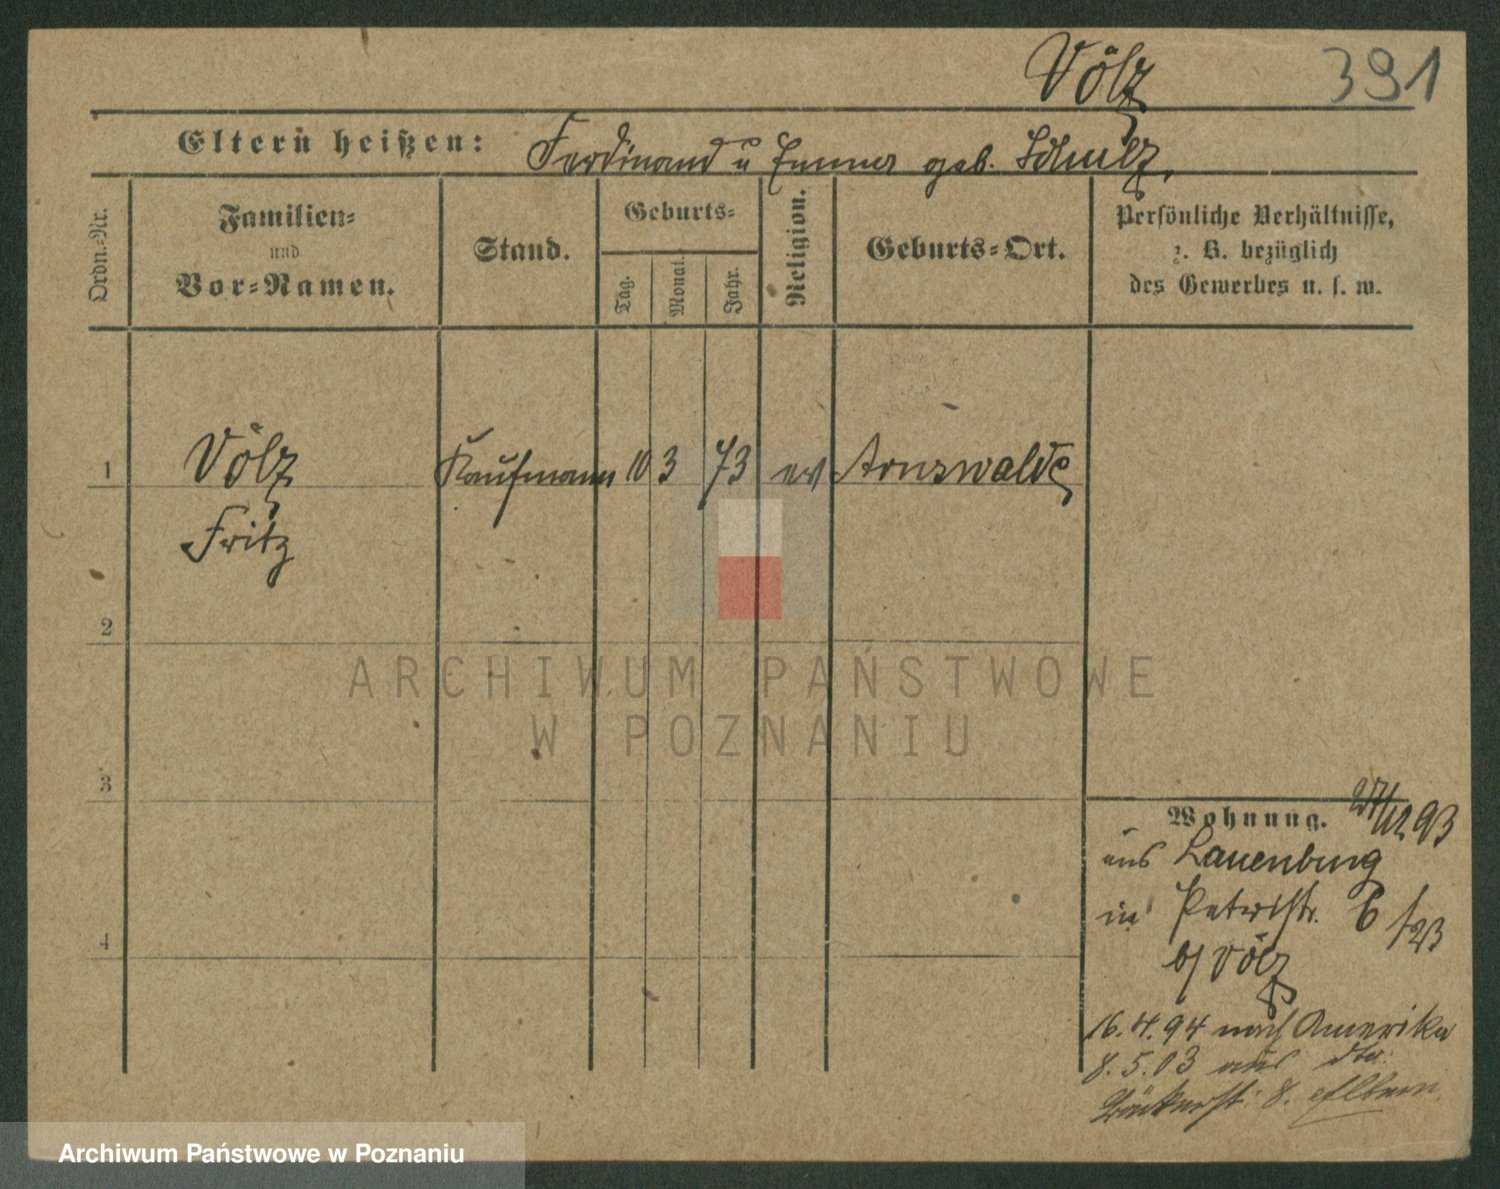 Völz 391
Eltern heißen: Ferdinand u Emma geb. Schulz.
Ordn.-Nr.
Familien-
und
Vor-Namen.
Stand.
Geburts-
Tag.
Monat.
Jahr.
Religion.
Geburts-Ort.
Persönliche Verhältnisse,
z. B. bezüglich
des Gewerbes u. s. w.
1 Völz Kaufmann 10 3 73 ev Arnswalde
Fritz
2
ARCHIWUM PAŃSTWOWE
W POZNANIU
3
Wohnung. 27/12 93
aus Lauenburg
in Petristr. 6
b/ Völz
4
16.4.94 nach Amerika
8.5.03 aus dto.
8. Eltern
Archiwum Państwowe w Poznaniu